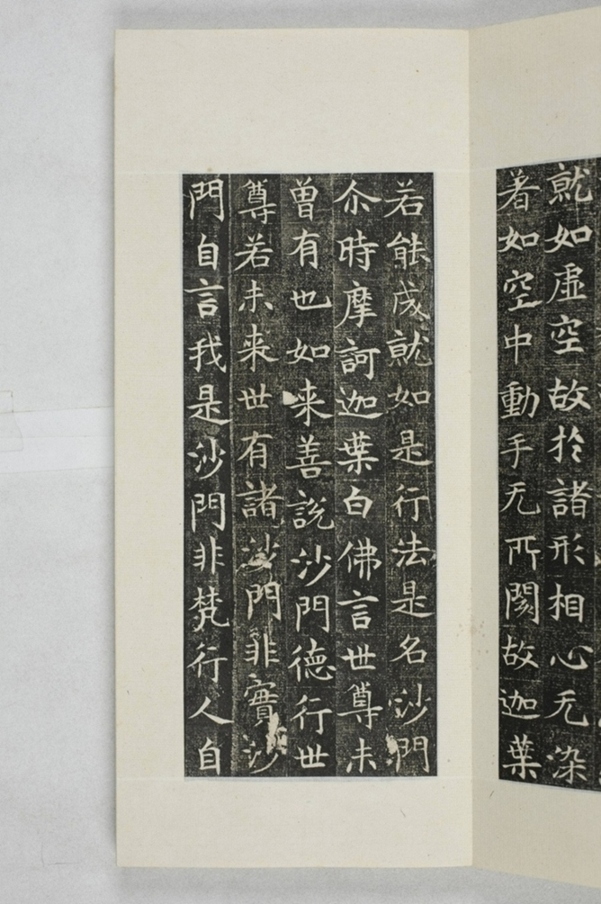 就如虛空故扵諸形相心无染
著如空中動手无所閡故迦葉
若能成就如是行法是名沙門
尒時摩訶迦葉白佛言世尊未
曽有也如来善說沙門德行世
尊若未来世有諸沙門非實沙
門自言我是沙門非梵行人自